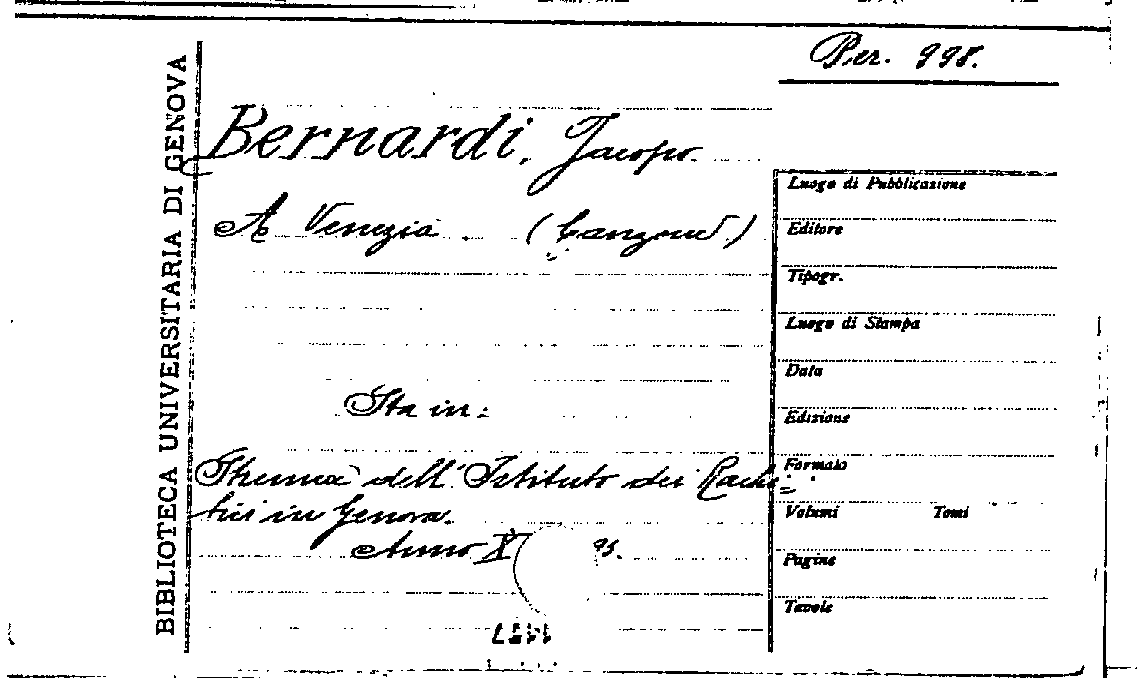 Per. 998.
BIBLIOTECA UNIVERSITARIA DI GENOVA
Bernardi, Jacopo
A Venezia (Canzone)
Sta in:
Strenna dell'Istituto dei Rachi=
tici in Genova.
Anno X 95.
Luogo di Pubblicazione
Editore
Tipogr.
Luogo di Stampa
Data
Edizione
Formato
Volumi Tomi
Pagine
Tavole